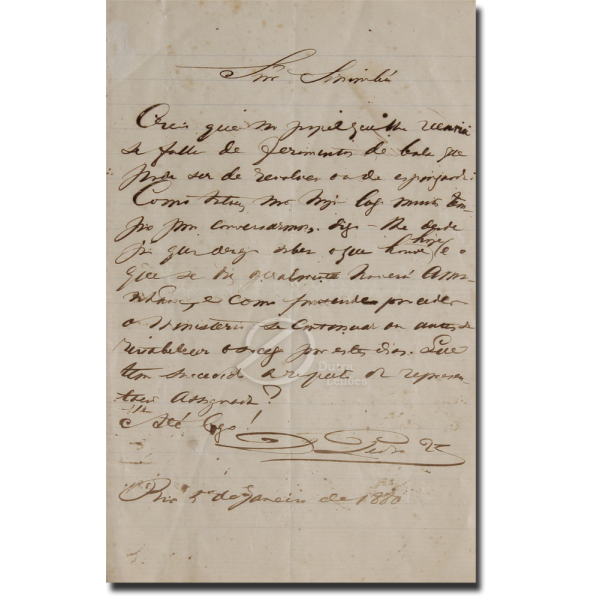 Snr. Sinimbú
Creio que no papel que lhe
se falla de ferimentos de bala que
pode ser de revolver ou de espingarda.
Como talvez não haja logo muito tem-
po para conversarmos, digo-lhe desde
já que desejo saber o que houve hoje, e o
que se diz geralmente haverá
e como pretende proceder
o Ministerio se continuar ou antes de
restabelecer o socego por estes dias. Que
tem succedido a respeito da represen-
tação assignada?
Até logo!
D. Pedro 2º
Rio 5 de Janeiro de 1880
Dutra
Leilões